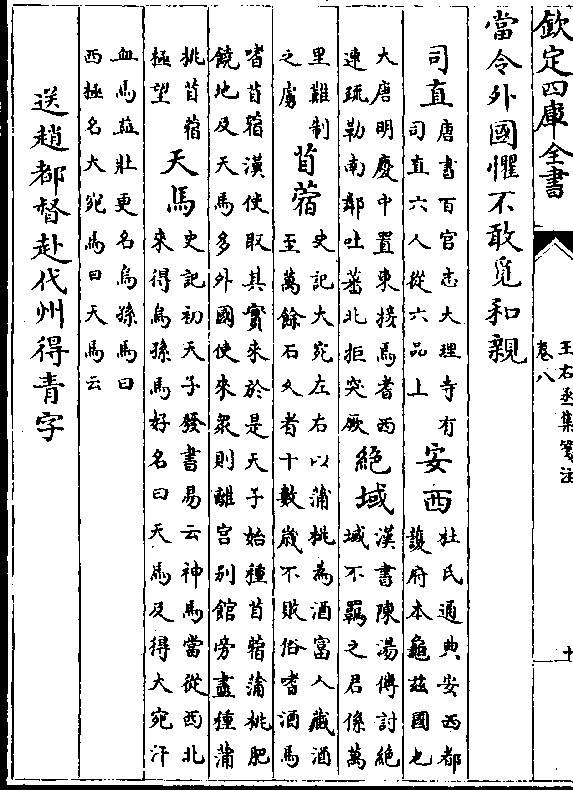 欽定四庫全書
王右丞集箋注
卷八
十
當令外國懼不敢覓和親
司直
唐書百官志大理寺有
司直六人從六品上
安西
杜氏通典安西都
護府本龜兹國也
大唐明慶中置東接焉耆西
連疏勒南鄰吐蕃北拒突厥
絶域
漢書陳湯傳討絶
域不羈之君係萬
里難制
之虜
苜蓿
史記大宛左右以蒲桃為酒富人藏酒
至萬餘石久者十數嵗不敗俗嗜酒馬
嗜苜蓿漢使取其實來於是天子始種苜蓿蒲桃肥
饒地及天馬多外國使來衆則離宫别館旁盡種蒲
桃苜蓿
極望
天馬
史記初天子發書易云神馬當從西北
來得烏孫馬好名曰天馬及得大宛汗
血馬益壯更名烏孫馬曰
西極名大宛馬曰天馬云
送趙都督赴代州得青字